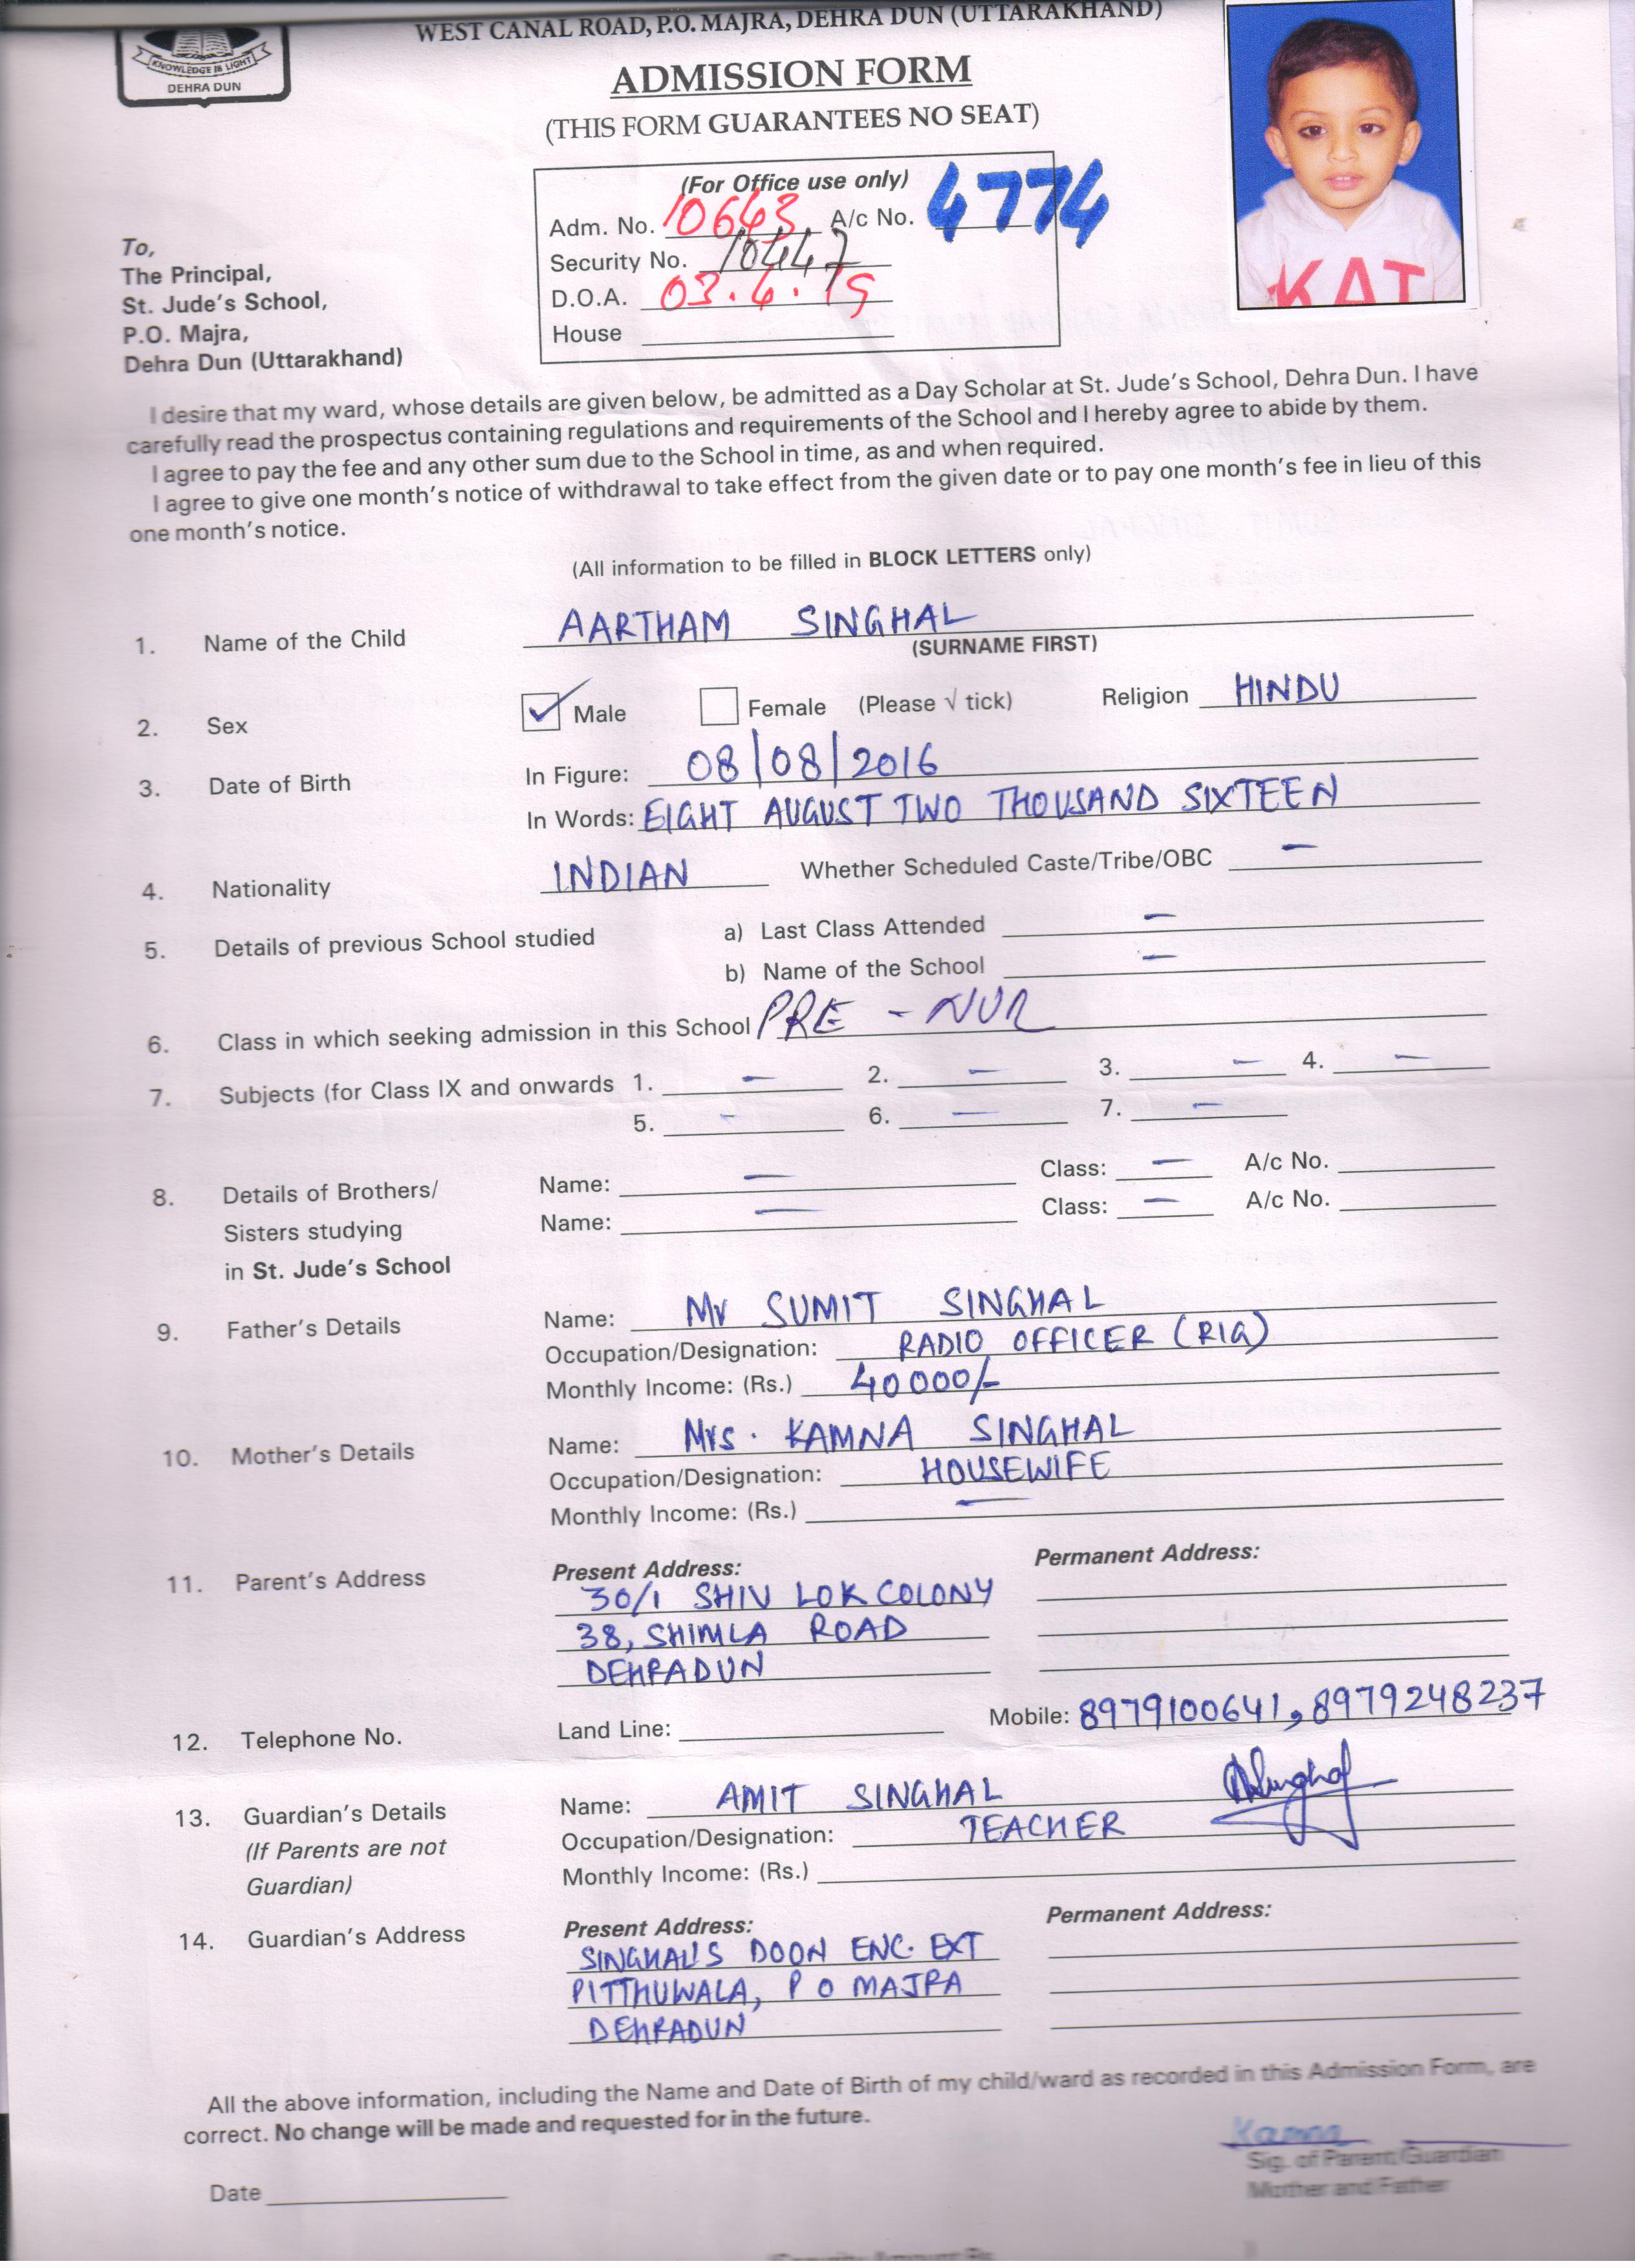 WEST CANAL ROAD, P.O. MAJRA, DEHRA DUN (UTTARAKHAND)
KNOWLEDGE IS LIGHT
DEHRA DUN
ADMISSION FORM
(THIS FORM GUARANTEES NO SEAT)
(For Office use only)
Adm. No. 10643 A/c No. 4774
Security No. 10447
D.O.A. 03.4.19
House
KAT
To,
The Principal,
St. Jude's School,
P.O. Majra,
Dehra Dun (Uttarakhand)
I desire that my ward, whose details are given below, be admitted as a Day Scholar at St. Jude's School, Dehra Dun. I have
carefully read the prospectus containing regulations and requirements of the School and I hereby agree to abide by them.
I agree to pay the fee and any other sum due to the School in time, as and when required.
I agree to give one month's notice of withdrawal to take effect from the given date or to pay one month's fee in lieu of this
one month's notice.
(All information to be filled in BLOCK LETTERS only)
1. Name of the Child AARTHAM SINGHAL
(SURNAME FIRST)
2. Sex ✓ Male Female (Please √ tick) Religion HINDU
3. Date of Birth In Figure: 08/08/2016
In Words: EIGHT AUGUST TWO THOUSAND SIXTEEN
4. Nationality INDIAN Whether Scheduled Caste/Tribe/OBC —
5. Details of previous School studied a) Last Class Attended —
b) Name of the School —
6. Class in which seeking admission in this School PRE - NUR
7. Subjects (for Class IX and onwards 1. — 2. — 3. — 4. —
5. — 6. — 7. —
8. Details of Brothers/ Name: — Class: — A/c No.
Sisters studying Name: — Class: — A/c No.
in St. Jude's School
9. Father's Details Name: Mr SUMIT SINGHAL
Occupation/Designation: RADIO OFFICER (RIG)
Monthly Income: (Rs.) 40000/-
10. Mother's Details Name: Mrs. KAMNA SINGHAL
Occupation/Designation: HOUSEWIFE
Monthly Income: (Rs.) —
11. Parent's Address Present Address: Permanent Address:
30/1 SHIV LOK COLONY
38, SHIMLA ROAD
DEHRADUN
12. Telephone No. Land Line: Mobile: 8979100641, 8979248237
13. Guardian's Details Name: AMIT SINGHAL
(If Parents are not Occupation/Designation: TEACHER
Guardian) Monthly Income: (Rs.)
14. Guardian's Address Present Address: Permanent Address:
SINGHAL'S DOON ENC. EXT
PITTHUWALA, P O MAJRA
DEHRADUN
All the above information, including the Name and Date of Birth of my child/ward as recorded in this Admission Form, are
correct. No change will be made and requested for in the future.
Kamna
Sig. of Parent/Guardian
Mother and Father
Date